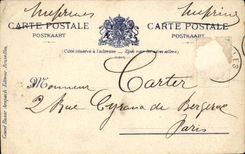 Imprimés Imprimé
CARTE POSTALE CARTE POSTALE
POSTKAART POSTKAART
(Côté réservé à l'adresse. — Zijde voor het adres alleen.)
Monsieur Carter
2 Rue Cyrano de Bergerac
Paris
Grand Bazar Anspach, Éditeur, Bruxelles.